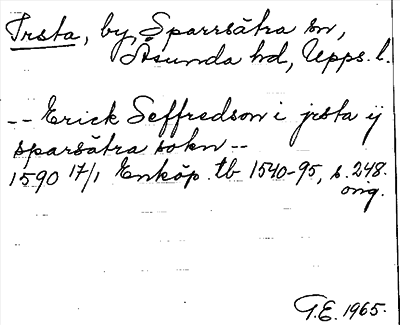 Irsta, by, Sparrsätra sn,
Åsunda hd, Upps. l.
-- Erick Seffredson i jrsta ij
sparsätra sokn --
1590 17/1 Enköp. tb 1540-95, s. 248.
orig.
G.E. 1965.